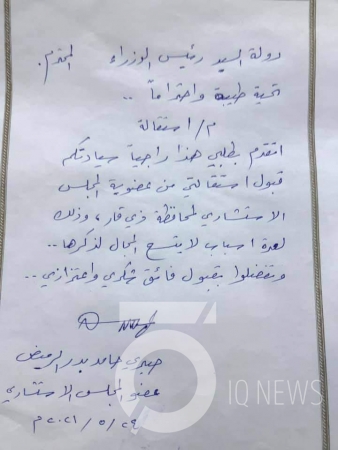 دولة السيد رئيس الوزراء المحترم.
تحية طيبة واحتراماً ..
م / استقالة
اتقدم بطلبي هذا راجياً سيادتكم
قبول استقالتي من عضوية المجلس
الاستشاري لمحافظة ذي قار ، وذلك
لعدة اسباب لا يتسع المجال لذكرها ..
وتفضلوا بقبول فائق شكري واعتزازي ..
حامد بدر
عضو المجلس الاستشاري
٢٠٢١ / ٥ / ٢٩ م
IQ NEWS